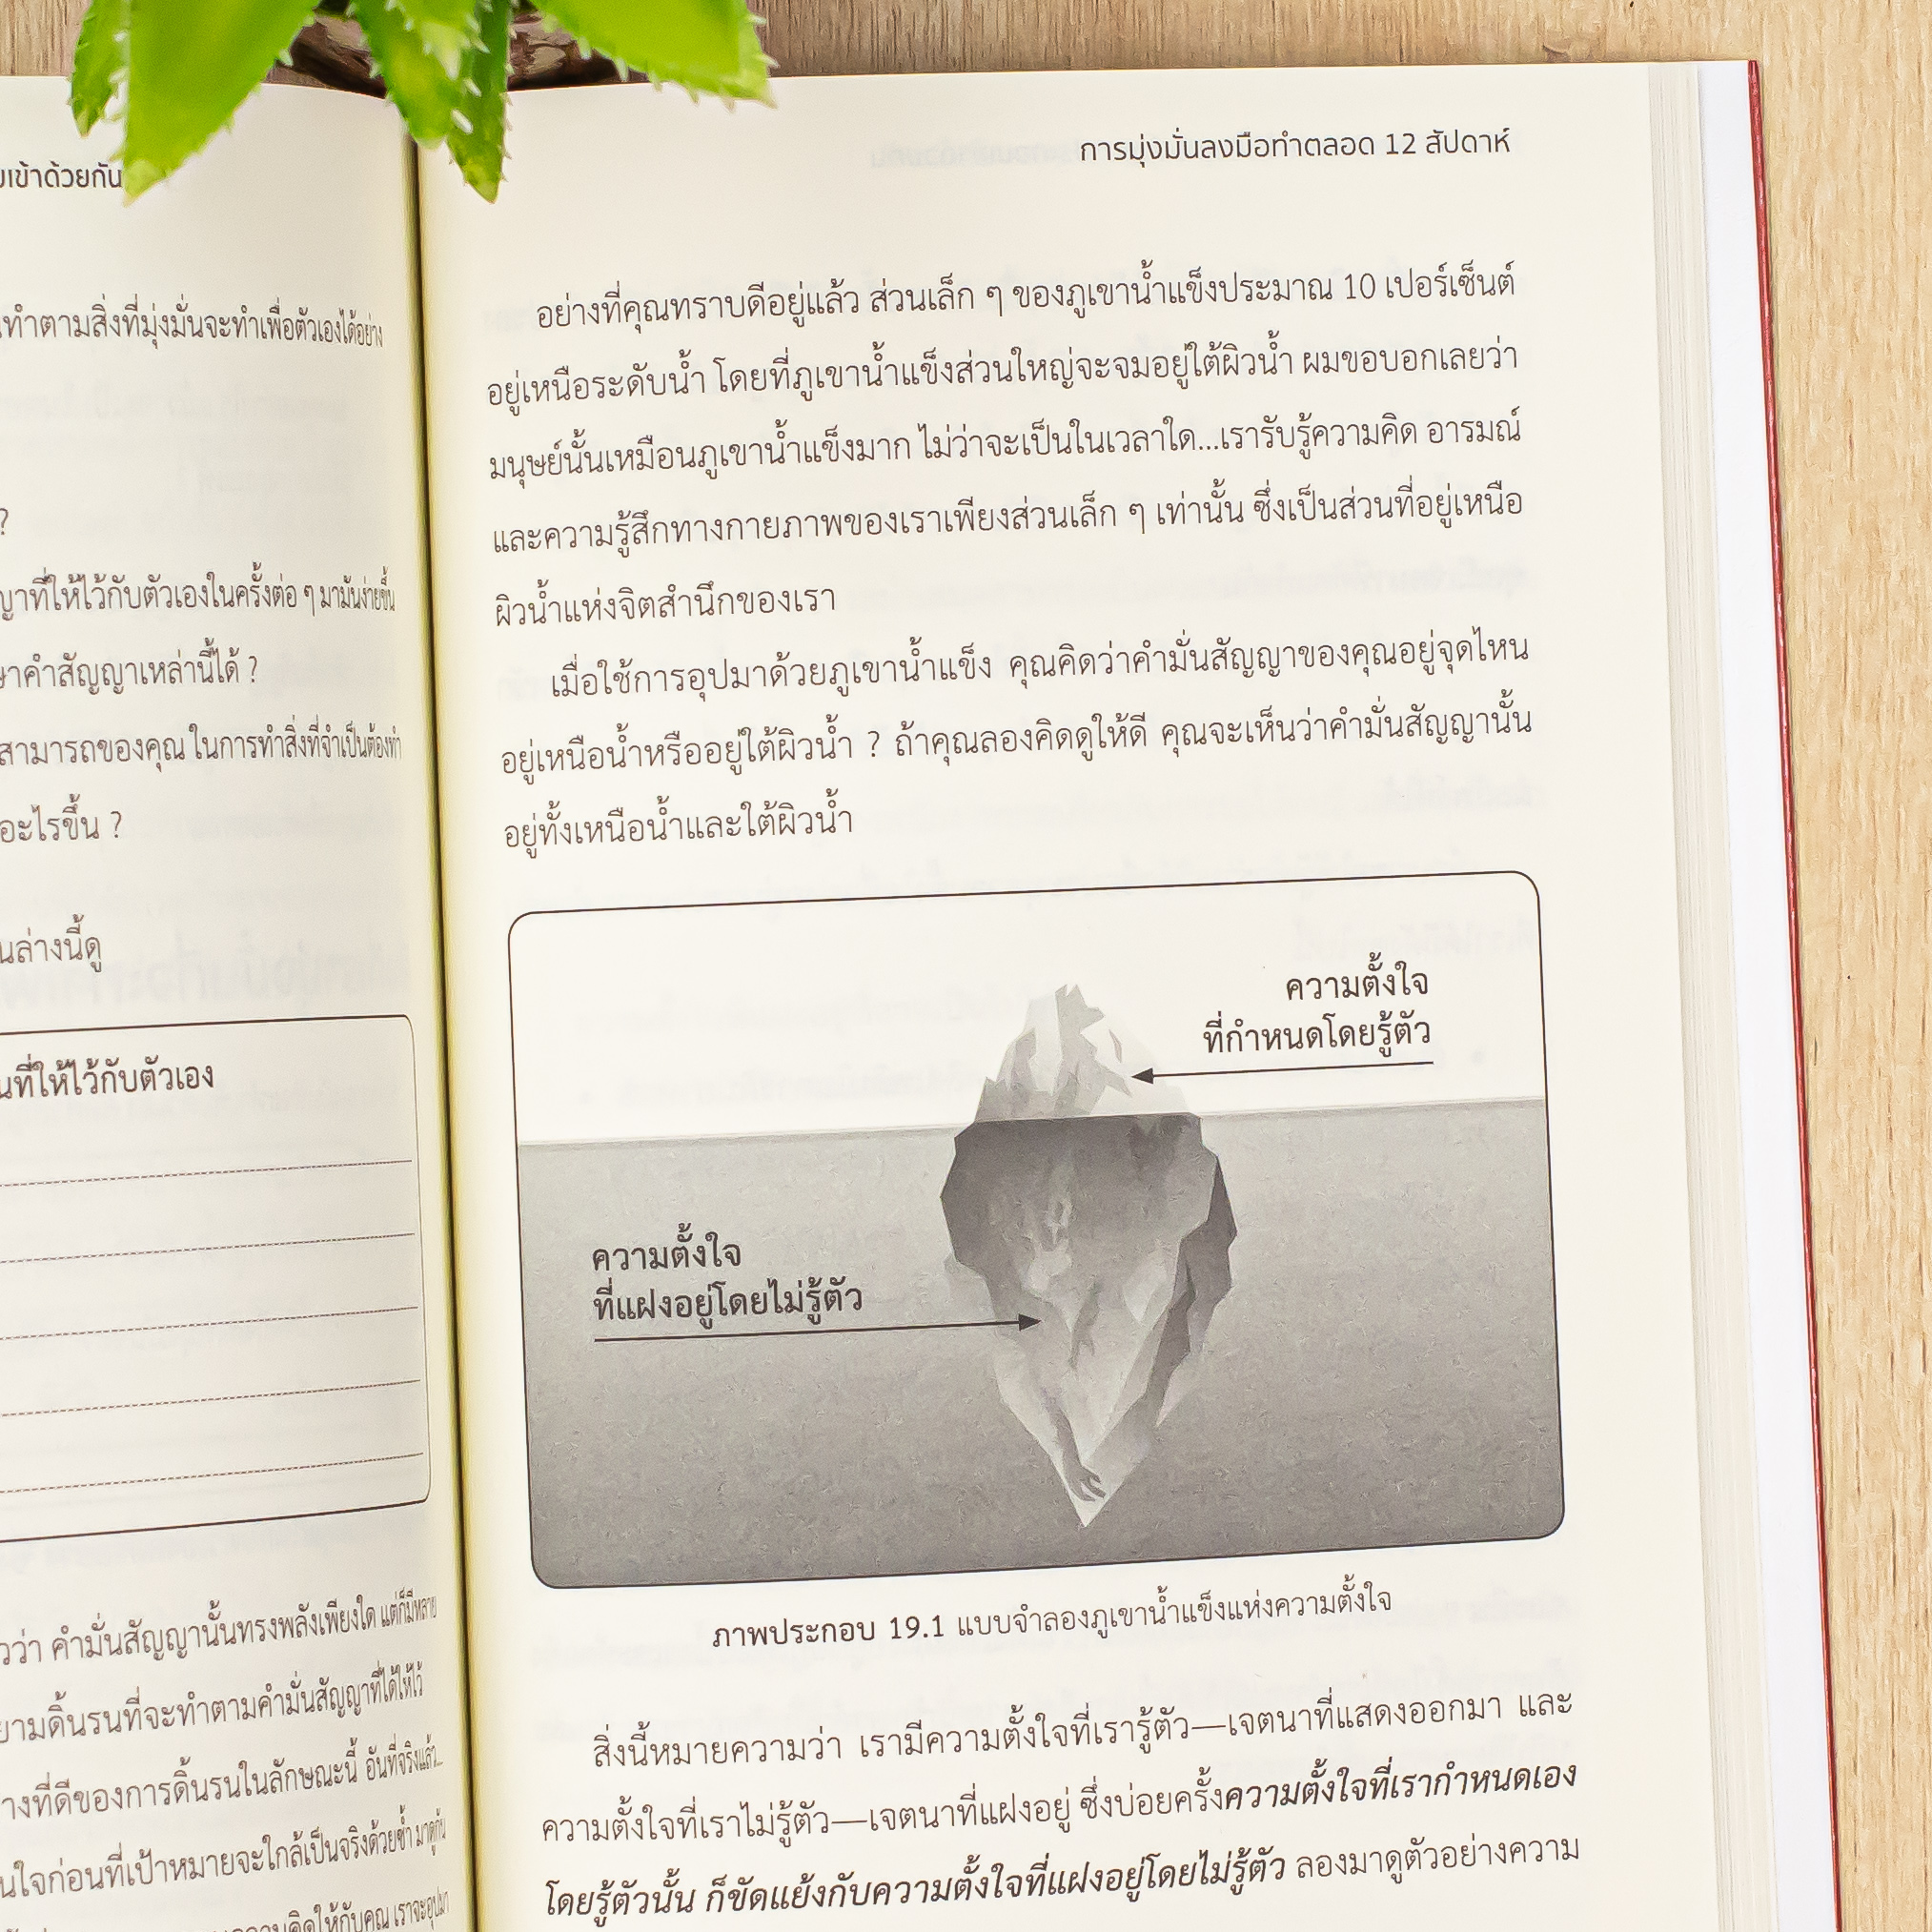 เข้าด้วยกัน
ทำตามสิ่งที่มุ่งมั่นจะทำเพื่อตัวเองได้อย่าง
?
ที่ให้ไว้กับตัวเองในครั้งต่อ ๆ มามันง่ายขึ้น
คำสัญญาเหล่านี้ได้ ?
สามารถของคุณ ในการทำสิ่งที่จำเป็นต้องทำ
อะไรขึ้น ?
ล่างนี้ดู
ที่ให้ไว้กับตัวเอง
ว่า คำมั่นสัญญานั้นทรงพลังเพียงใด แต่ก็มีหลาย
ดิ้นรนที่จะทำตามคำมั่นสัญญาที่ได้ให้ไว้
ที่ดีของการดิ้นรนในลักษณะนี้ อันที่จริงแล้ว...
ใจก่อนที่เป้าหมายจะใกล้เป็นจริงด้วยซ้ำ มาดูกัน
ความคิดให้กับคุณ เราจะอุปมา
การมุ่งมั่นลงมือทำตลอด 12 สัปดาห์
อย่างที่คุณทราบดีอยู่แล้ว ส่วนเล็ก ๆ ของภูเขาน้ำแข็งประมาณ 10 เปอร์เซ็นต์
อยู่เหนือระดับน้ำ โดยที่ภูเขาน้ำแข็งส่วนใหญ่จะจมอยู่ใต้ผิวน้ำ ผมขอบอกเลยว่า
มนุษย์นั้นเหมือนภูเขาน้ำแข็งมาก ไม่ว่าจะเป็นในเวลาใด...เรารับรู้ความคิด อารมณ์
และความรู้สึกทางกายภาพของเราเพียงส่วนเล็ก ๆ เท่านั้น ซึ่งเป็นส่วนที่อยู่เหนือ
ผิวน้ำแห่งจิตสำนึกของเรา
เมื่อใช้การอุปมาด้วยภูเขาน้ำแข็ง คุณคิดว่าคำมั่นสัญญาของคุณอยู่จุดไหน
อยู่เหนือน้ำหรืออยู่ใต้ผิวน้ำ ? ถ้าคุณลองคิดดูให้ดี คุณจะเห็นว่าคำมั่นสัญญานั้น
อยู่ทั้งเหนือน้ำและใต้ผิวน้ำ
ความตั้งใจ
ที่กำหนดโดยรู้ตัว
ความตั้งใจ
ที่แฝงอยู่โดยไม่รู้ตัว
ภาพประกอบ 19.1 แบบจำลองภูเขาน้ำแข็งแห่งความตั้งใจ
สิ่งนี้หมายความว่า เรามีความตั้งใจที่เรารู้ตัว—เจตนาที่แสดงออกมา และ
ความตั้งใจที่เราไม่รู้ตัว—เจตนาที่แฝงอยู่ ซึ่งบ่อยครั้งความตั้งใจที่เรากำหนดเอง
โดยรู้ตัวนั้น ก็ขัดแย้งกับความตั้งใจที่แฝงอยู่โดยไม่รู้ตัว ลองมาดูตัวอย่างความ